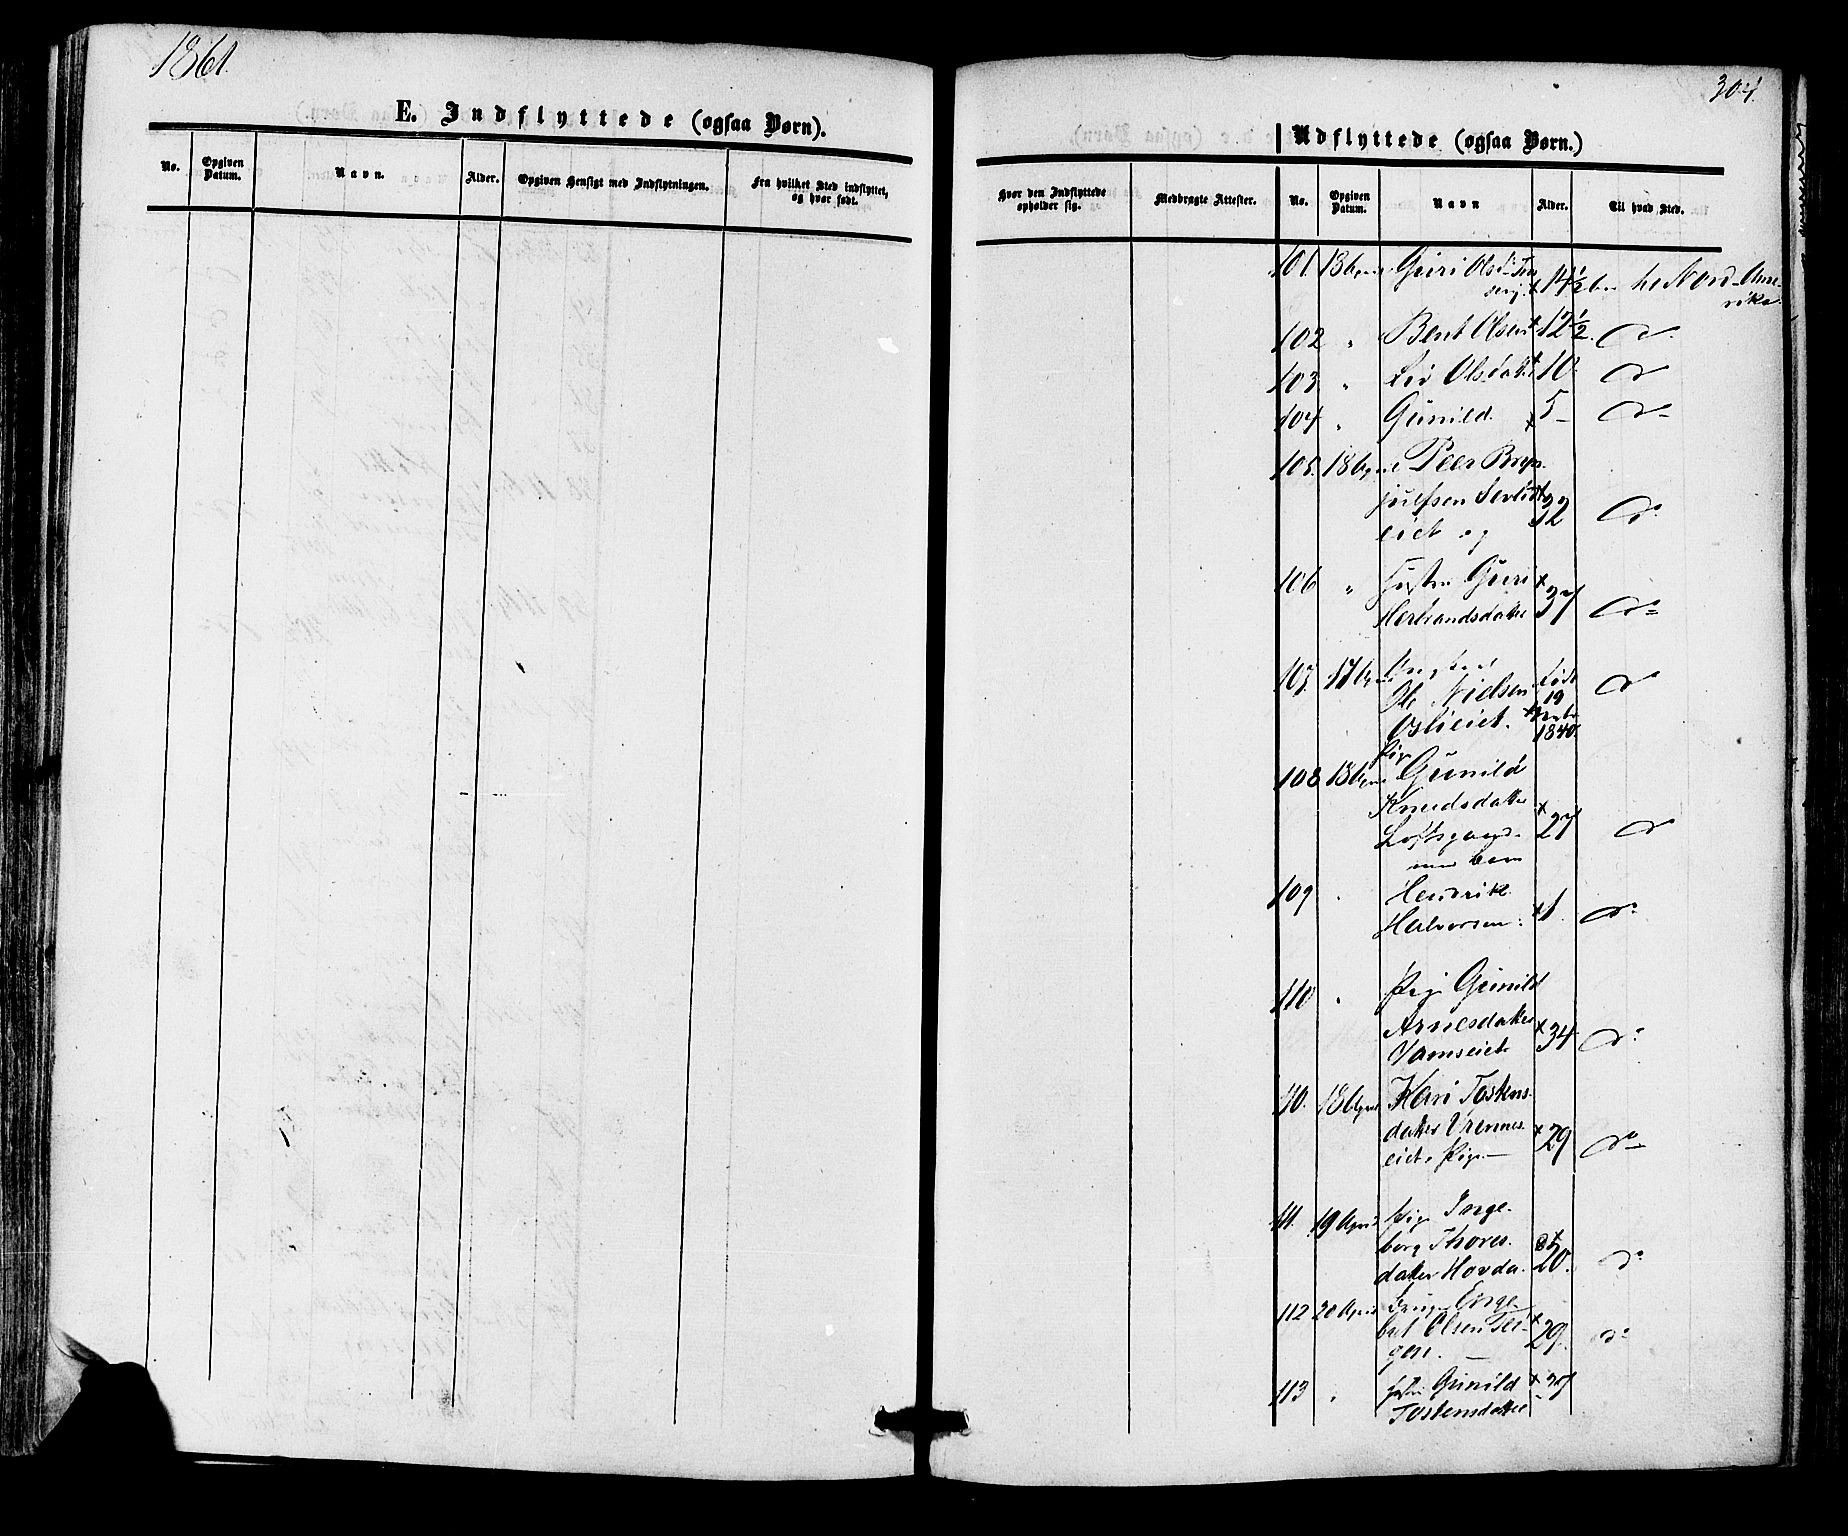 1861.
E. Indflyttede (ogsaa Børn).
No.
Opgiven Datum.
Navn.
Alder.
Opgiven Hensigt med Indflytningen.
Fra hvilket Sted indflyttet, og hvor født.
304.
Udflyttede (ogsaa Børn.)
Hvor den Indflyttede opholder sig.
Medbragte Attester.
No.
Opgiven Datum.
Navn
Alder.
Til hvad Sted.
101 18 April Guri Olsd. 14½ Nord-Ame-
rika.
102 " Bent Olsen 12½ do
103 " Liv Olsdatter 10 do
104 " Gunild 5 do
105. 18 April Peer Bryn-
julfsen
eiet og 32 do
106 " Hustru Guri
Herbrandsdatter 37 do
107. 17 April Ungkarl
Ole Nielsen født 19 do
Oslieiet. 1840.
108 18 April Pige Gunild
Knudsdatter
Loftsgaard 27 do
med Barn
109 " Hendrik
Halvorsen. 1. do
110 " Pige Gunild
Arnesdatter 34 do
110. 18 April Kari Tostens-
datter Vrennes-
eiet, Pige 29 do
111. 19 April Pige Inge-
borg Thores-
datter Hovda. 20. do
112 20 April Enge-
bret Olsen 29. do
113 " Hustru Gunild 37
Tostensdatter